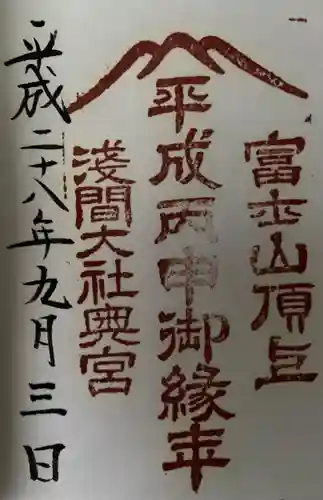 富士山頂上
平成丙申御縁年
浅間大社奥宮
平成二十八年九月三日